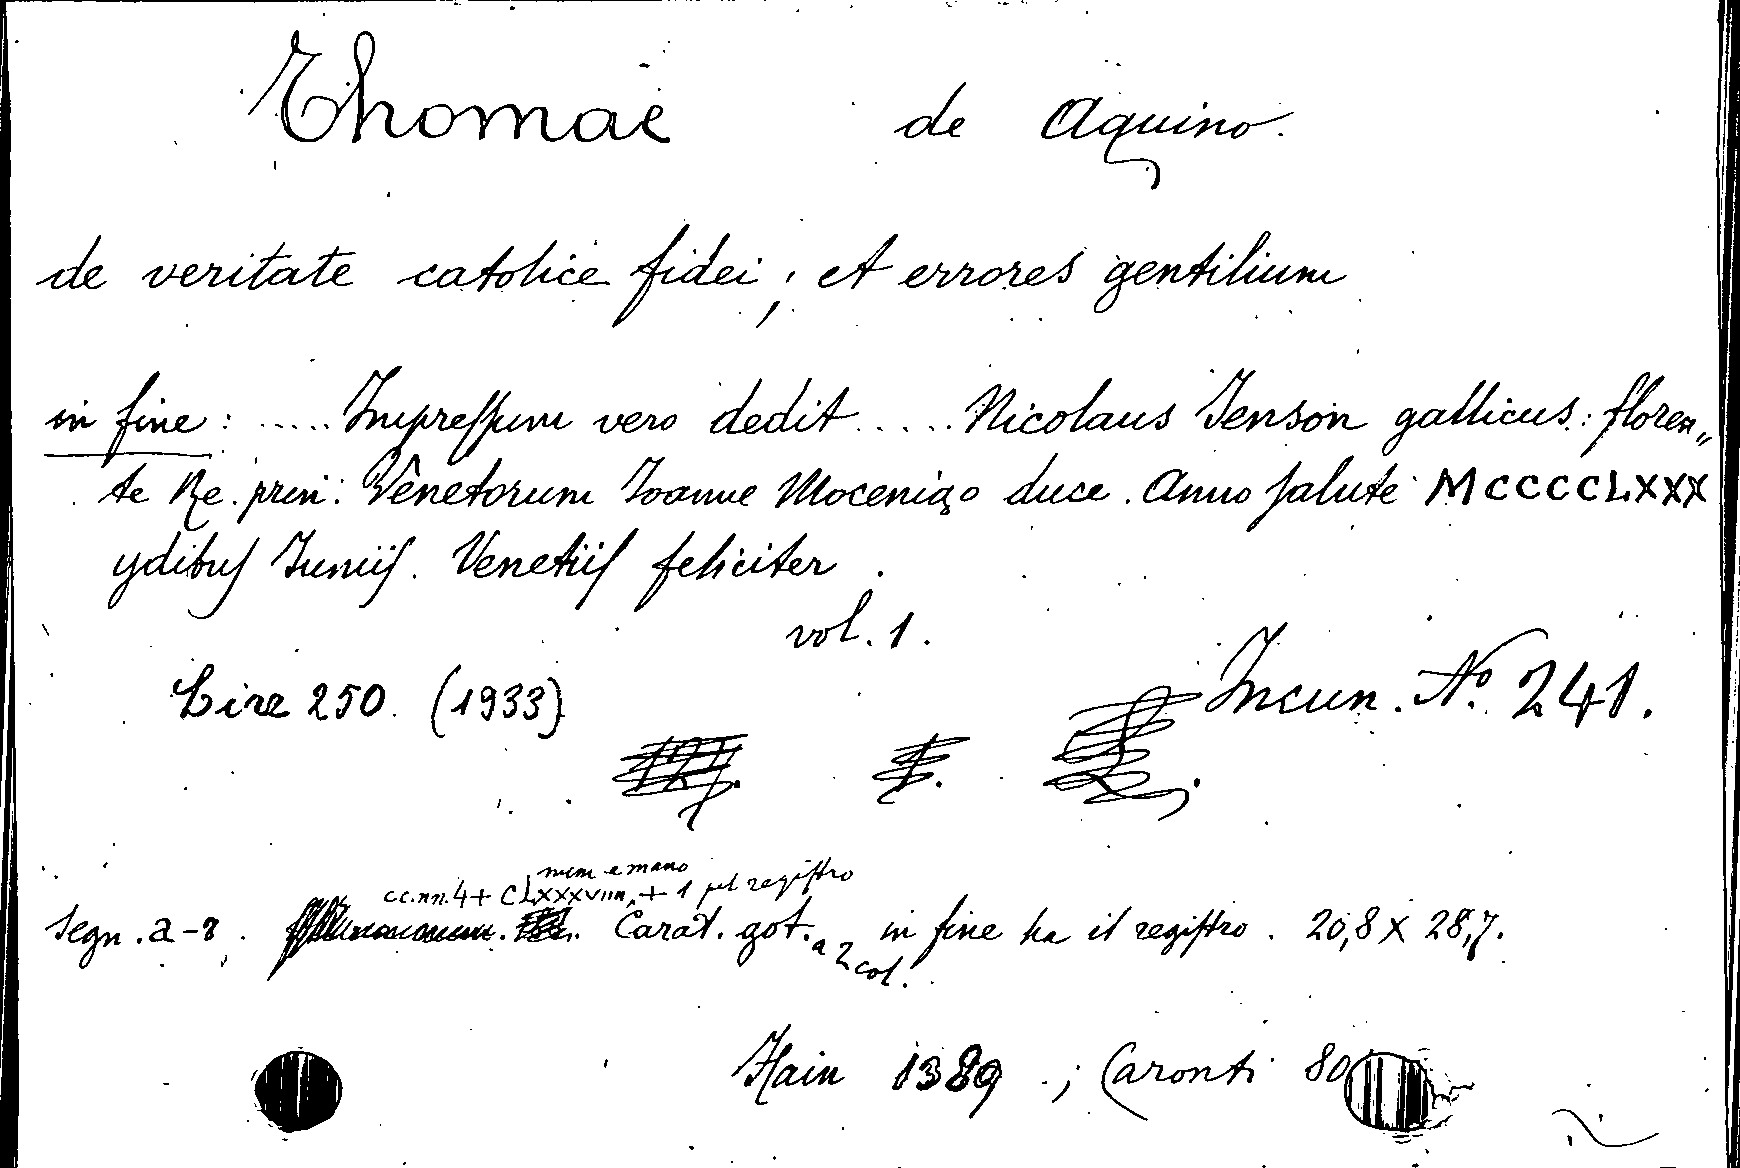 Thomae de Aquino.
de veritate catolice fidei, et errores gentilium
in fine: ..... Impreſſum vero dedit ..... Nicolaus Jenson gallicus: floren„
te Re. prin: Venetorum Joanne Mocenigo duce. Anno ſalute MCCCCLXXX
ydibuſ Juniiſ. Venetiiſ feliciter.
vol. 1.
Lire 250. (1933)
Incun. No. 241.
num a mano
cc.nn. 4 + CLXXXVIIII, + 1 pel regiſtro
segn. a-z. Carat. got. a 2 col. in fine ha il regiſtro. 20,8 x 28,7.
Hain 1389.; Caronti 80